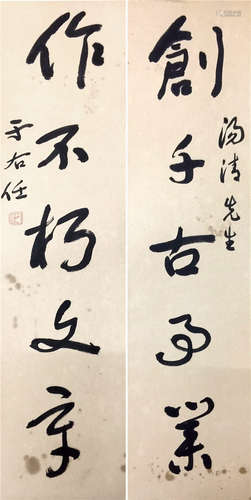 創千古事業
湯清先生
作不朽文章
于右任